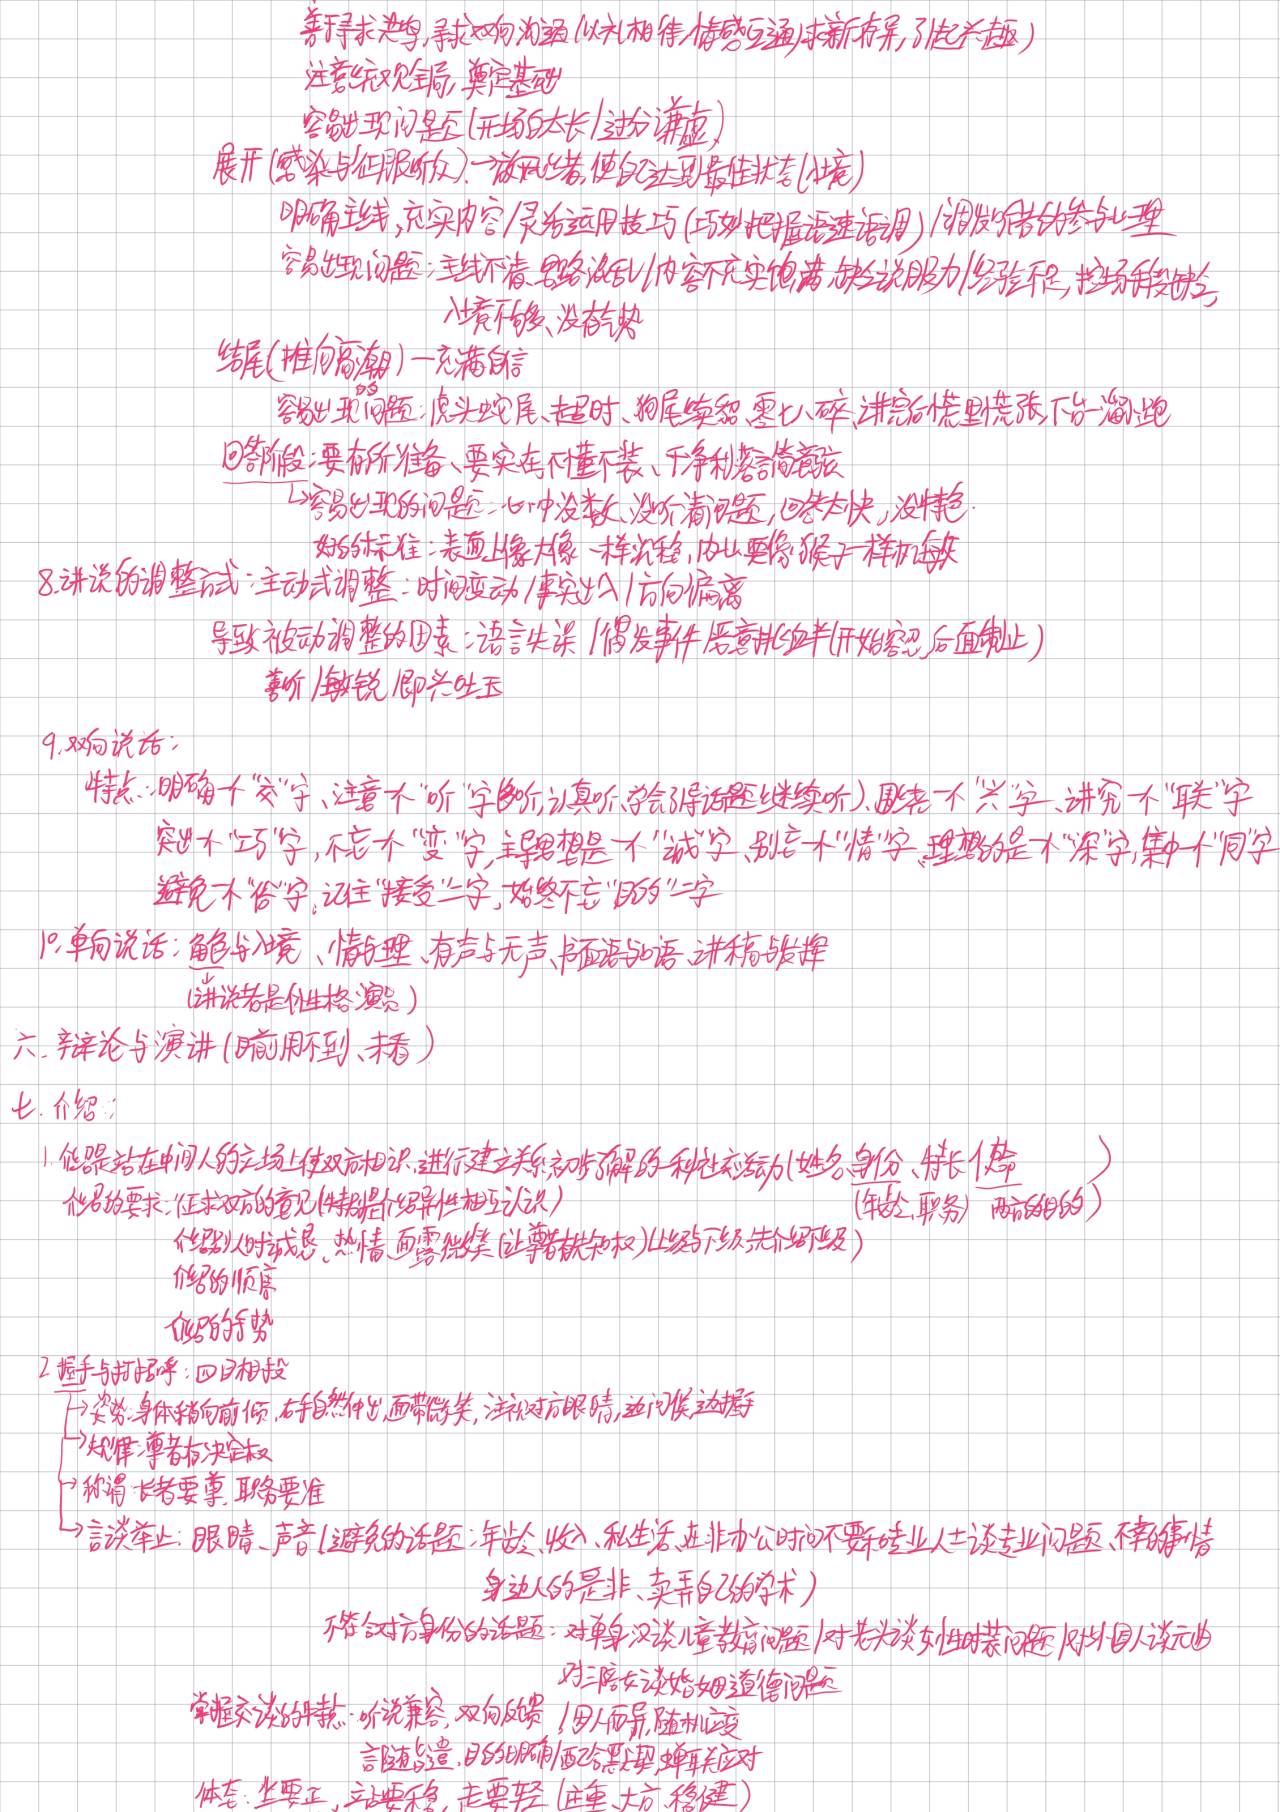 善于寻求共鸣,寻求双向沟通(以礼相待,情感互通,求新存异,引起兴趣)
注意统观全局,奠定基础
容易出现问题(开场白太长/过分谦虚)
展开(感染与征服听众):→放风筝者,使自己达到最佳状态(入境)
明确主线,充实内容/灵活运用技巧(巧妙把握语速语调)/调发听者的参与心理
容易出现问题:主线不清、思路混乱/内容不充实饱满、缺乏说服力/经验不足,控场手段缺乏,
入境不够、没有气势
结尾(推向高潮)—充满自信
容易出现的问题:虎头蛇尾、超时、狗尾续貂、零七八碎、讲完后慌里慌张,下台一溜小跑
回答阶段:要有所准备、要实在不懂不装、干净利落言简意赅
↳容易出现的问题:心中没数、没听清问题,回答太快,没特色.
好的标准:表面上像大像一样沉稳,内心要像猴子一样机敏
8.讲说的调整方式:主动式调整:时间变动/事实出入/方向偏离
导致被动调整的因素:语言失误/偶发事件/恶意挑衅(开始容忍,后面制止)
善听/敏锐/即兴吐玉
9.双向说话:
特点:明确一个“交”字、注意一个“听”字(多听,认真听,学会引导话题继续听)、围绕一个“兴”字、讲究一个“联”字
突出一个“巧”字,不忘一个“变”字,主导思想是一个“诚”字、别忘一个“情”字、理想的是一个“深”字,集中一个“同”字
避免一个“俗”字,记住“接受”二字,始终不忘“目的”二字
10.单向说话:角色与入境、情与理、有声与无声、书面语与口语、讲稿与发挥
(讲说者是个性格演员)
六.辩论与演讲(目前用不到、未看)
七.介绍:
1.介绍是站在中间人的立场上使双方相识、进行建立关系,初步了解的一种社交活动(姓名、身份、特长、使命)
(年龄、职务) 两方的目的)
介绍的要求:征求双方的意见(特别是介绍异性相互认识)
介绍别人时诚恳、热情、面露微笑(让尊者优先知权)(上级与下级,先介绍下级)
介绍的顺序
介绍的手势
2.握手与打招呼:四目相投
→姿势:身体稍向前倾,右手自然伸出,面带微笑,注视对方眼睛,边问候,边握手
→规律:尊者有决定权
→称谓:长者要尊,职务要准
→言谈举止:眼睛、声音(避免的话题:年龄、收入、私生活、在非办公时间不要和专业人士谈专业问题、不幸的事情
身边人的是非、卖弄自己的学术)
不符合对方身份的话题:对单身汉谈儿童教育问题/对老头谈女性时装问题/对外国人谈元曲
对三陪女谈婚姻道德问题
掌握交谈的特点:听说兼容,双向反馈/因人而异,随机应变
言随旨遣,目的明确/配合默契,蝉联应对
体态:坐要正,站要稳,走要轻(庄重、大方、稳健)